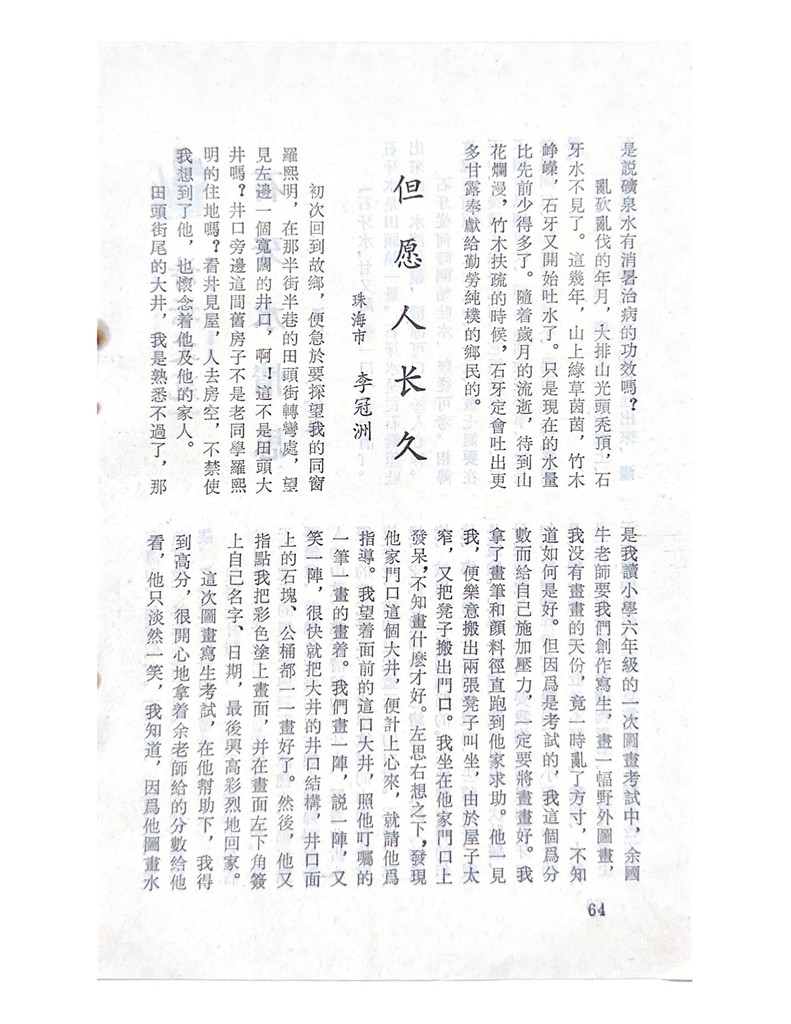 是説礦泉水有消暑治病的功效嗎？
亂砍亂伐的年月，大排山光頭秃頂，石
牙水不見了。這幾年，山上綠草茵茵，竹木
崢嶸，石牙又開始吐水了。只是現在的水量
比先前少得多了。隨着歲月的流逝，待到山
花爛漫，竹木扶疏的時候，石牙定會吐出更
多甘露奉獻給勤勞純樸的鄉民的。
但愿人长久
珠海市 李冠洲
初次回到故鄉，便急於要探望我的同窗
羅熙明，在那半街半巷的田頭街轉彎處，望
見左邊一個寬闊的井口，啊！這不是田頭大
井嗎？井口旁邊這間舊房子不是老同學羅熙
明的住地嗎？看井見屋，人去房空，不禁使
我想到了他，也懷念着他及他的家人。
田頭街尾的大井，我是熟悉不過了，那
是我讀小學六年級的一次圖畫考試中，余國
牛老師要我們創作寫生，畫一幅野外圖畫，
我没有畫畫的天份，竟一時亂了方寸，不知
道如何是好。但因爲是考試的，我這個爲分
數而給自己施加壓力，一定要將畫畫好。我
拿了畫筆和顔料徑直跑到他家求助。他一見
我，便樂意搬出兩張凳子叫坐，由於屋子太
窄，又把凳子搬出門口。我坐在他家門口上
發呆，不知畫什麽才好。左思右想之下，發現
他家門口這個大井，便計上心來，就請他爲
指導。我望着面前的這口大井，照他叮囑的
一筆一畫的畫着。我們畫一陣，説一陣，又
笑一陣，很快就把大井的井口結構，井口面
上的石塊、公桶都一一畫好了。然後，他又
指點我把彩色塗上畫面，并在畫面左下角簽
上自己名字、日期，最後興高彩烈地回家。
這次圖畫寫生考試，在他幫助下，我得
到高分，很開心地拿着余老師給的分數給他
看，他只淡然一笑，我知道，因爲他圖畫水
64